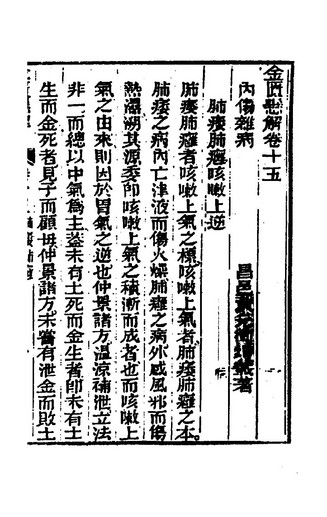 金匱懸解卷十五
昌邑黃元御坤載著
內傷雜病
肺痿肺癰咳嗽上逆
肺痿肺癰者咳嗽上氣之標咳嗽上氣者肺痿肺癰之本
肺痿之病內亡津液而傷火燥肺癰之病外感風邪而傷
熱濕溯其源委卽咳嗽上氣之積漸而成者也而咳嗽上
氣之由來則因於胃氣之逆也仲景諸方溫凉補泄立法
非一而總以中氣爲主蓋未有土死而金生者卽未有土
生而金死者見子而顧母仲景諸方未嘗有泄金而敗土